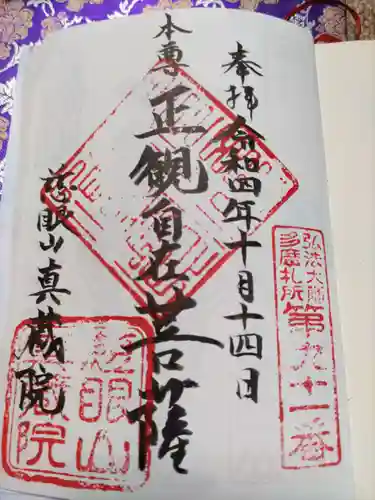 奉拝 令和四年十月十四日
弘法大師
多磨札所
第九十一番
本尊
正観自在菩薩
慈眼山真蔵院
慈眼山
真蔵院